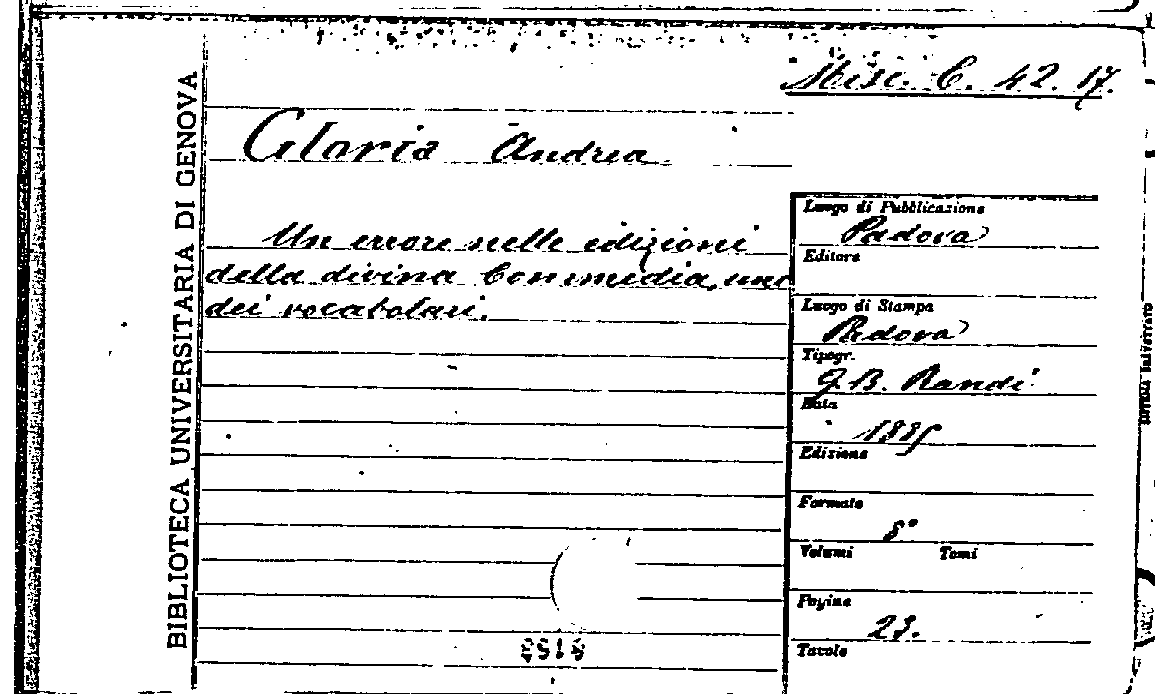 BIBLIOTECA UNIVERSITARIA DI GENOVA
Misc. C. 42. 17.
Gloria Andrea
Un errore nelle edizioni
della divina Commedia, uno
dei vocabolari.
Luogo di Pubblicazione
Padova
Editore
Luogo di Stampa
Padova
Tipogr.
G.B. Randi
Data
1885
Edizione
Formato
8°
Volumi Tomi
Pagine
23.
Tavole